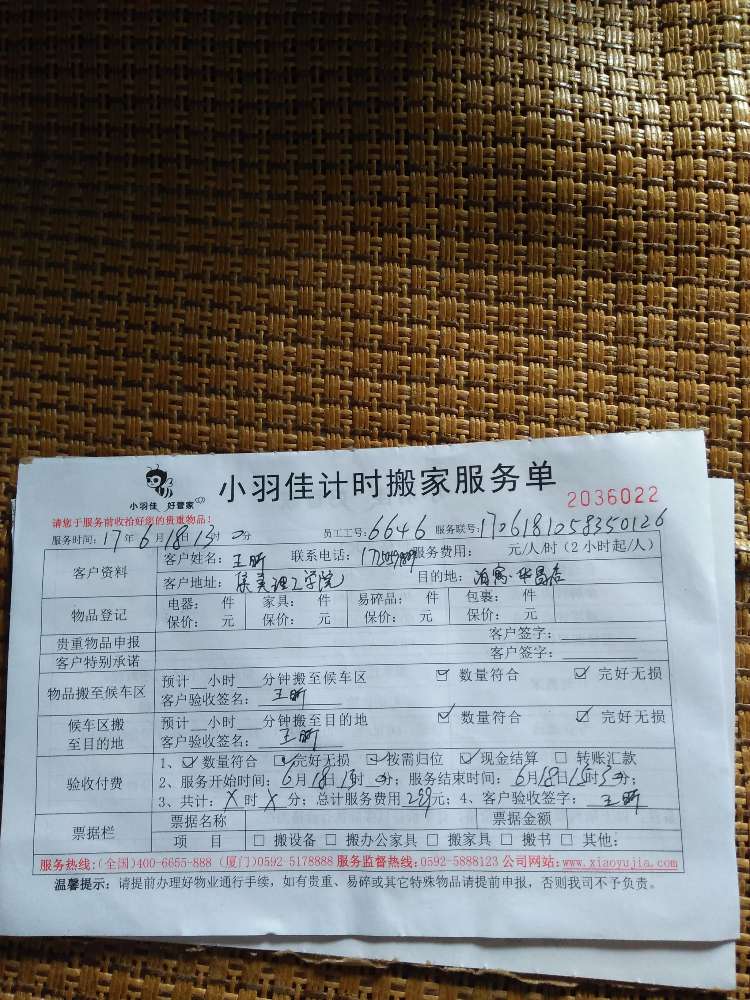 小羽佳计时搬家服务单
小羽佳 好管家
2036022
请您于服务前收拾好您的贵重物品!
服务时间: 17年6月18日13时 分 员工工号: 6646 服务联号: 1706181058350126
客户资料
客户姓名: 王昕 联系电话: 服务费用: 元/人/时 (2小时起/人)
客户地址: 集美理工学院 目的地: 泊寓·华昌店
物品登记
电器: 件 家具: 件 易碎品: 件 包裹: 件
保价: 元 保价: 元 保价: 元 保价: 元
贵重物品申报 客户签字:
客户特别承诺 客户签字:
物品搬至候车区
预计 小时 分钟搬至候车区 ☑ 数量符合 ☑ 完好无损
客户验收签名: 王昕
候车区搬至目的地
预计 小时 分钟搬至目的地 ☑ 数量符合 ☑ 完好无损
客户验收签名: 王昕
验收付费
1、☑ 数量符合 ☑ 完好无损 ☑ 按需归位 ☑ 现金结算 □ 转账汇款
2、服务开始时间: 6月18日13时 分; 服务结束时间: 6月18日15时 分;
3、共计: X 时 X 分; 总计服务费用 299元; 4、客户验收签字: 王昕
票据栏
票据名称 票据金额
项 目 □ 搬设备 □ 搬办公家具 □ 搬家具 □ 搬书 □ 其他:
服务热线:(全国)400-6655-888 (厦门)0592-5178888 服务监督热线:0592-5888123 公司网站:www.xiaoyujia.com
温馨提示: 请提前办理好物业通行手续, 如有贵重、易碎或其它特殊物品请提前申报, 否则我司不予负责。